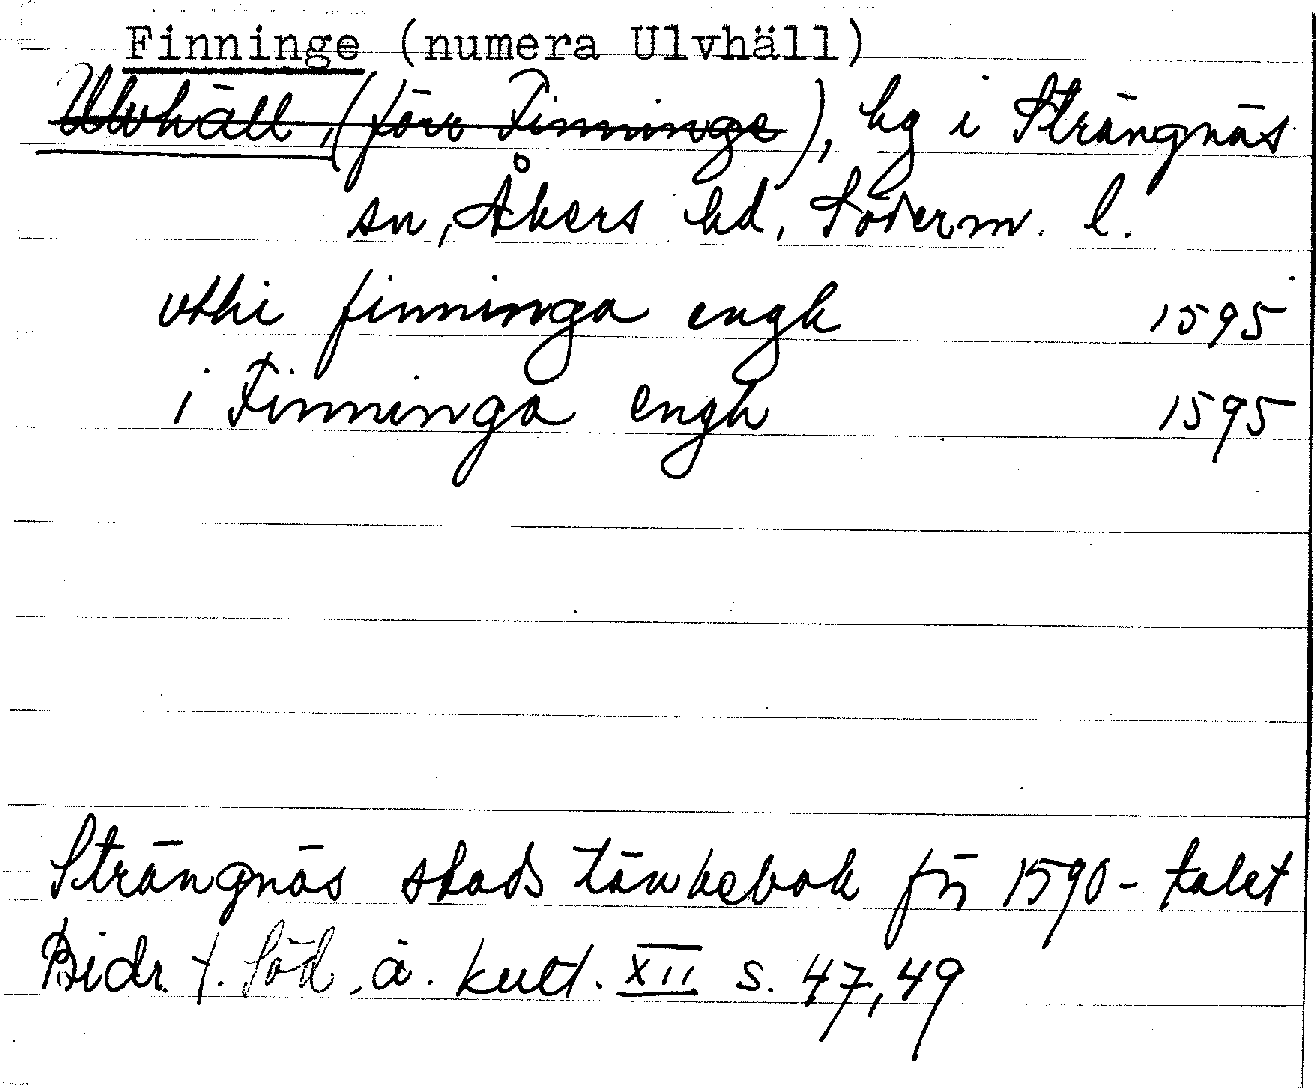 Finninge (numera Ulvhäll)
Ulvhäll, (förr Finninge), hg i Strängnäs
sn, Åkers hd, Söderm. l.
vthi finninga engh 1595
i Finninga engh 1595
Strängnäs stads tänkebok fr 1590-talet
Bidr. t. Söd. ä. kult. XII s. 47, 49